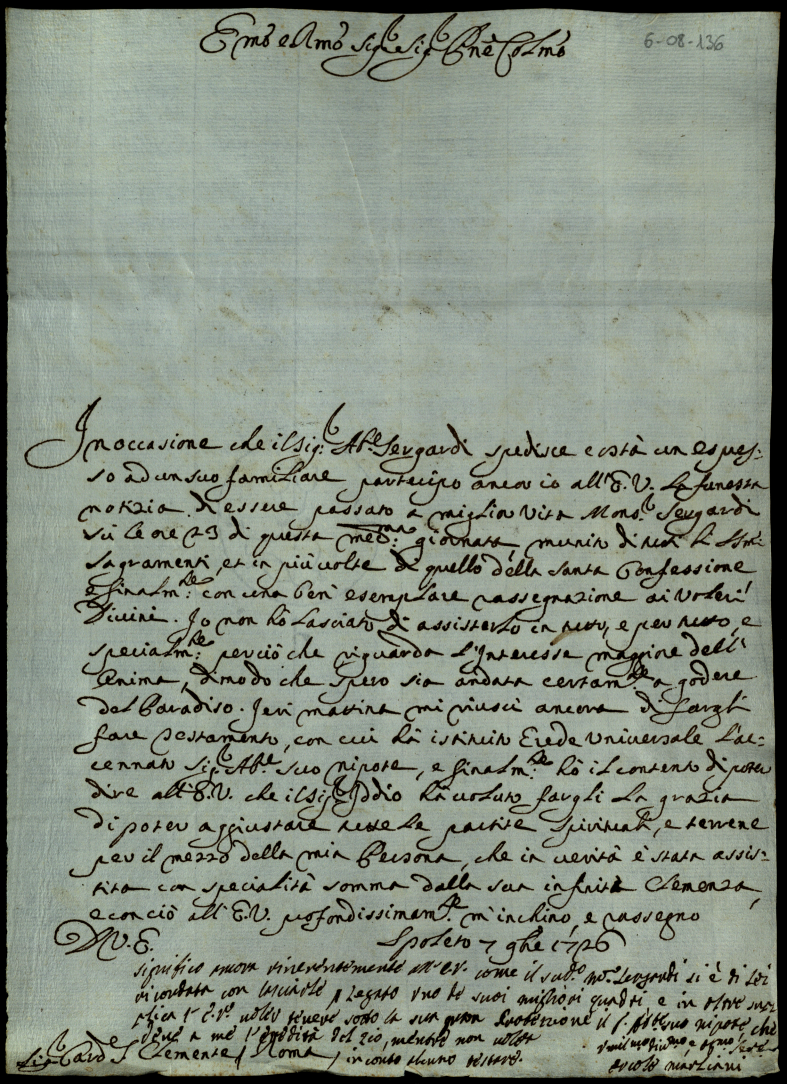 Emo e Rmo Sig.r e Sig.r Pne Colmo
6-08-136
In occasione che il Sig.r Ab.e Sergardi spedisce costà un espres-
so ad un suo familiare partecipo ancor io all'E.V. la funesta
notizia di essere passato a miglior vita Mons.r Sergardi
su le ore 23 di questa med.ma giornata, munito di tutti li SSmi
Sagramenti, et in più volte di quello della Santa Confessione
e finalm.te con una ben esemplare rassegnazione ai voleri
Divini. Io non hò lasciato di assisterlo in tutto, e per tutto, e
specialm.te perciò che riguarda l'Interesse maggiore dell'
Anima, di modo che spero sia andata certam.te a godere
del Paradiso. Jeri mattina mi riuscì ancora di fargli
fare Testamento, con cui hà istituito Erede Universale l'ac-
cennato Sig.r Ab.e suo nipote, e finalm.te hò il contento di poter
dire all'E.V. che il Sig.r Iddio hà voluto fargli la grazia
di poter aggiustare tutte le partite Spirituali, e terrene
per il mezzo della mia Persona, che in verità è stata assis-
tita con specialità somma dalla sua infinita Clemenza,
e con ciò all'E.V. profondissimam.te m'inchino, e rassegno
D.V.E. Spoleto 7 9bre 1726
significo ancora riverentemente all'E.V. come il sud.o m.r Sergardi si è di lei
ricordato con lasciarle p legato uno de suoi migliori quadri e in oltre sup
plica l'E.V. voler tenere sotto la sua protezione il S. Abb.e suo nipote, che
deve a me l'eredità del zio, mentre non voleva
in conto alcuno testare.
Sig.r Card.e S. Clemente / Roma /
ercole marziani